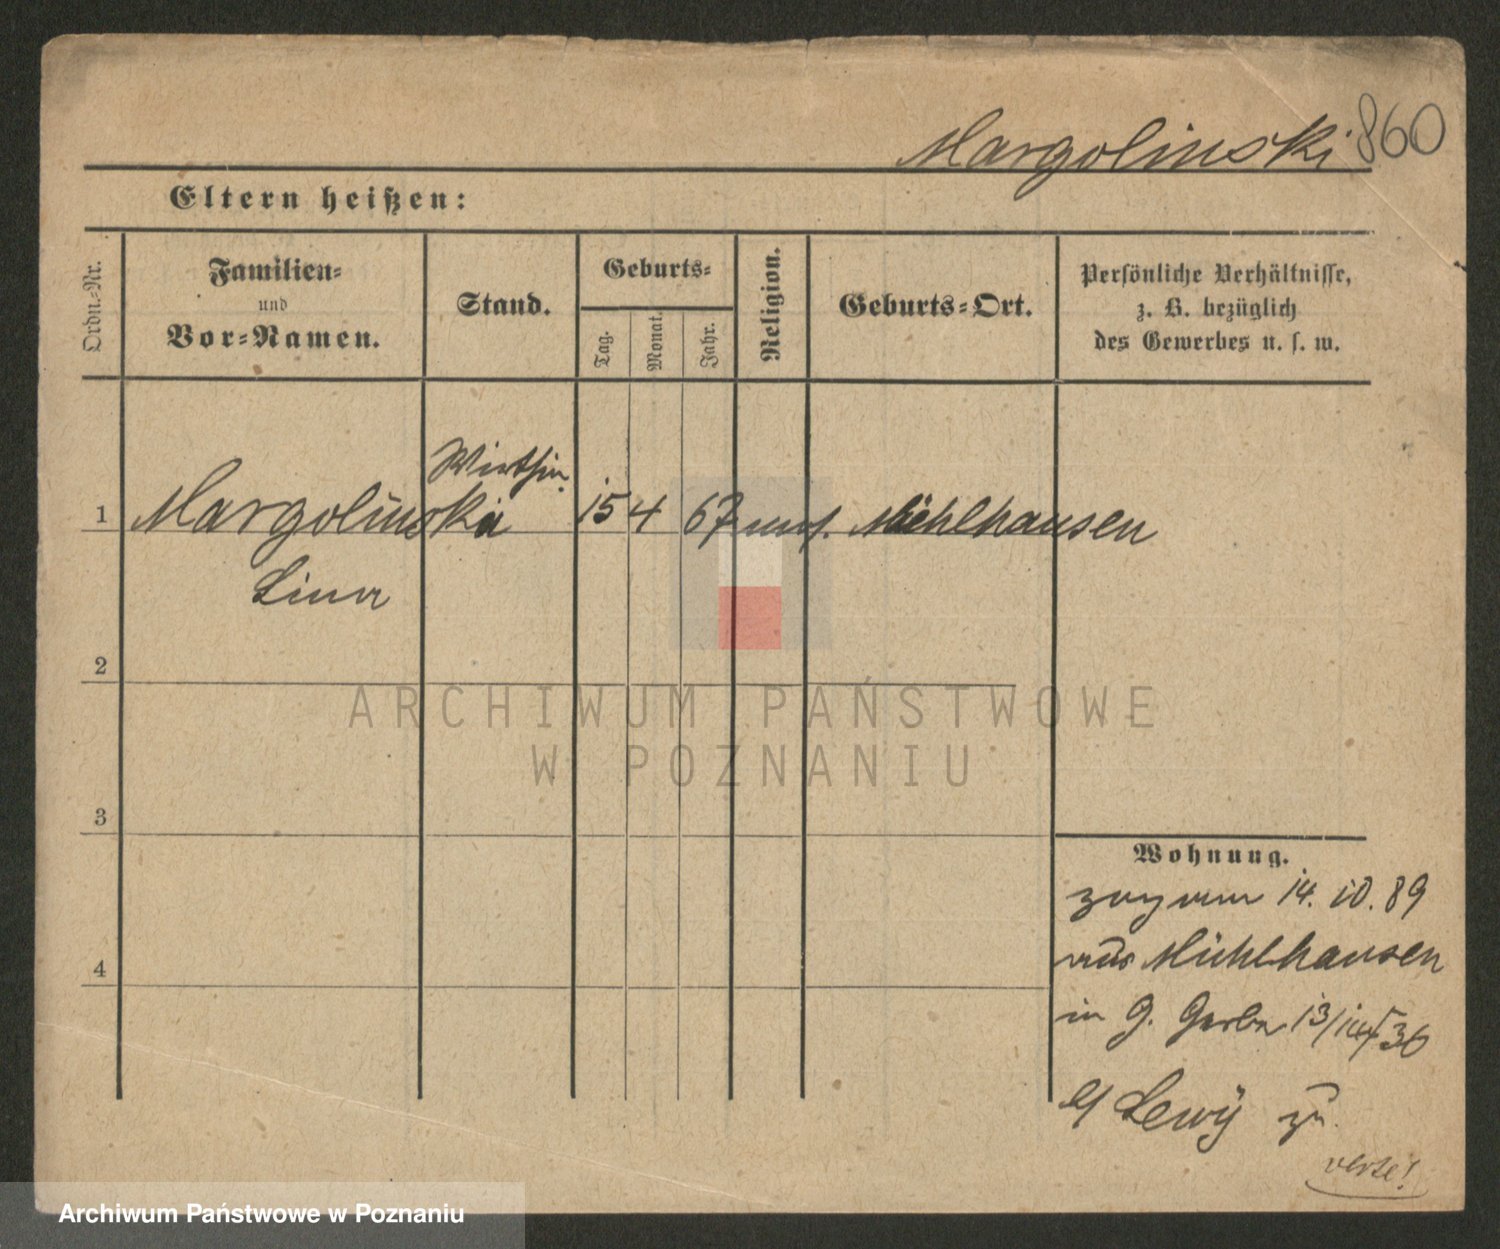 Margolinski 860
Eltern heißen:
Ordn.-Nr.
Familien-
und
Vor-Namen.
Stand.
Geburts-
Tag.
Monat.
Jahr.
Religion.
Geburts-Ort.
Persönliche Verhältnisse,
z. B. bezüglich
des Gewerbes u. s. w.
Wirthin.
1 Margolinski 15 4 67 mos. Mühlhausen
Lina
2
3
4
Wohnung.
zugezogen 14. 10. 89
aus Mühlhausen
in G. Gerber 13/14
b/ Lewÿ zu.
verte!
ARCHIWUM PAŃSTWOWE
W POZNANIU
Archiwum Państwowe w Poznaniu